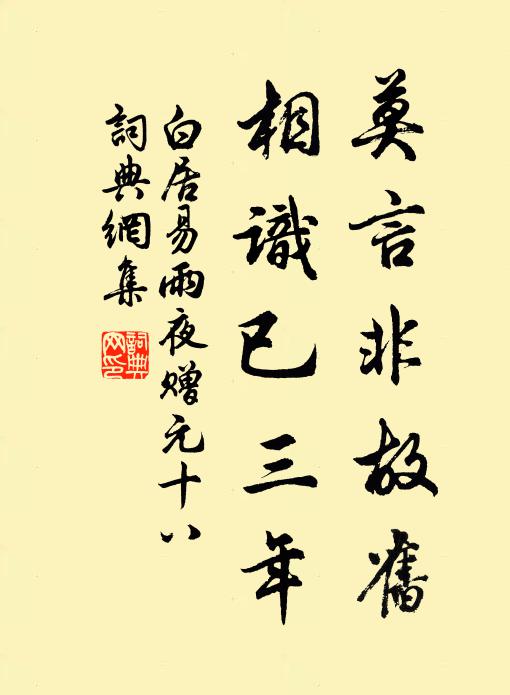 莫言非故舊
相識已三年
白居易雨夜贈元十八
詞典網集
詞典网印